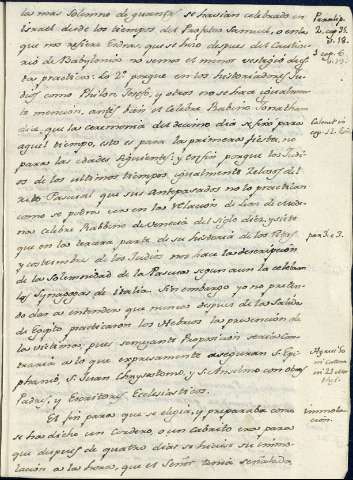 las mas solemne de quantas se havian celebrado en
Israel desde los tiempos del Propheta Samuel, o en la
que no refiere Esdras que se hizo despues del Cautive
rio de Babylonia no vemos el menor vestigio de
tas practicas. Lo 2º porque en los historiadores Ju
dios como Philon Josefo, y otros no se hace igualmen
te mencion, antes bien el celebre Rabino Jonathan
dice, que la ceremonia del decimo dia se hizo para
aquel tiempo, esto es para la primera fiesta, no
para las edades siguientes: y en fin porque los Judi
os de los ultimos tiempos igualmente zelosos del
rito Pascual que sus Antepasados no lo practican
como se podra ver en la relacion de Leon de Mode
na celebre Rabbino de Venecia del siglo diez y siete
que en la tercera parte de su historia de los ritos
y costumbres de los Judios nos hace la descripcion
de la Solemnidad de la Pascua segun aun la celebran
las Synagogas de Italia. Sin embargo yo no preten
do dar a entender que nunca despues de la salida
de Egipto practicaron los Hebreos la prevencion de
las victimas, pues semejante Proposicion seria con
traria a lo que expresamente aseguran S. Epi
phanio, S. Juan Chrysostomo, y S. Anselmo con otros
Padres, y Escritores Ecclesiasticos.
El fin para que se elegia, y preparaba como
se ha dicho un Cordero, o un Cabrito era para
que despues de quatro dias se hiciese su inmo
lacion a la hora, que el Señor tenia señalada
Paralip.
2. cap. 35.
v. 18.
3 cap. 6.
v. 19.
Calmet in
cap. 12. Exod
par. 3. c. 3.
inmola
cion.